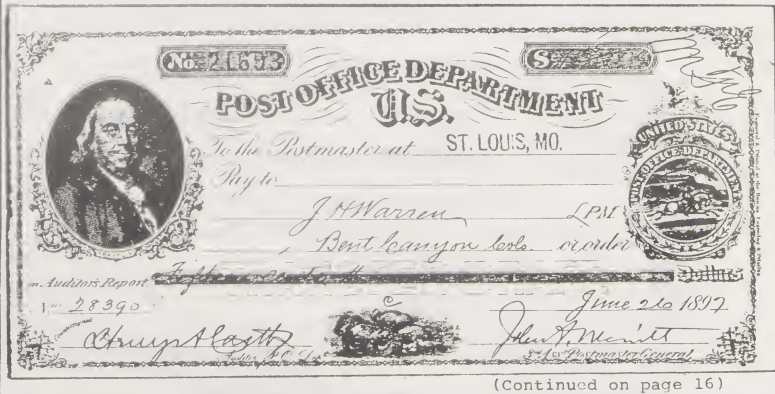 No. 21693 $
POST OFFICE DEPARTMENT
U.S.
To the Postmaster at ST. LOUIS, MO.
Pay to
J H Warren PM
Bent Canyon Colo. or order
on Auditor's Report Dollars
28390 June 26 1897
Countersigned
John A. Merritt
3rd Ass't Postmaster General
UNITED STATES
POST OFFICE DEPARTMENT
(Continued on page 16)